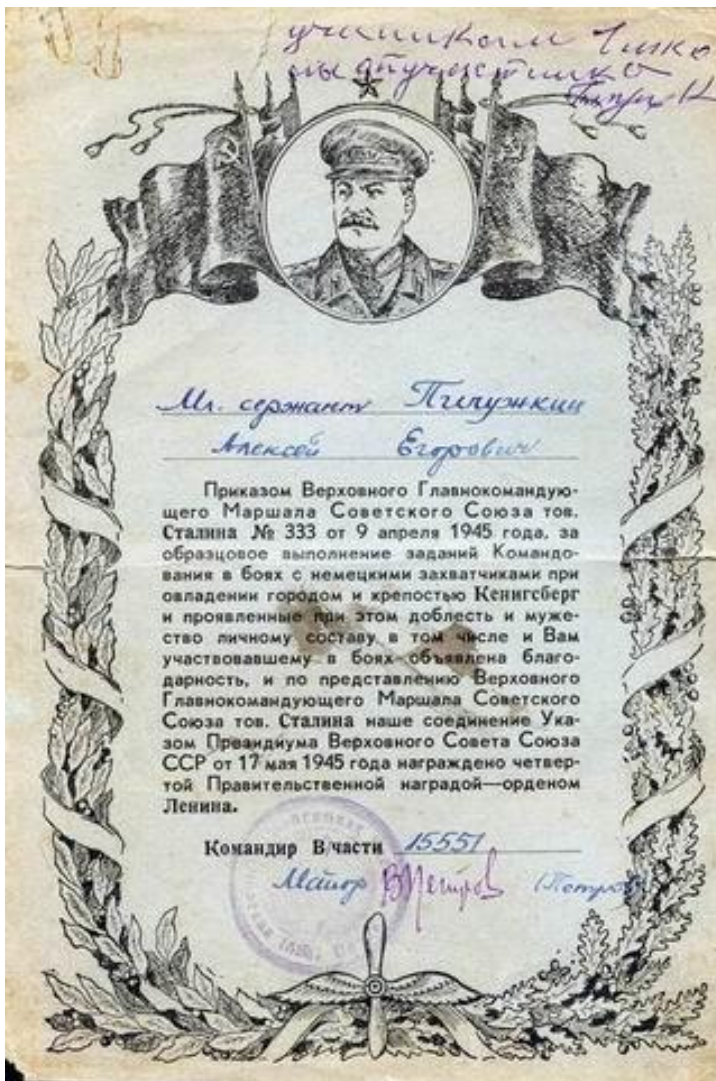 Мл. сержант Пичужкин
Алексей Егорович
Приказом Верховного Главнокомандую-
щего Маршала Советского Союза тов.
Сталина № 333 от 9 апреля 1945 года, за
образцовое выполнение заданий Командо-
вания в боях с немецкими захватчиками при
овладении городом и крепостью Кенигсберг
и проявленные при этом доблесть и муже-
ство личному составу в том числе и Вам
участвовавшему в боях объявлена благо-
дарность, и по представлению Верховного
Главнокомандующего Маршала Советского
Союза тов. Сталина наше соединение Ука-
зом Президиума Верховного Совета Союза
ССР от 17 мая 1945 года награждено четвер-
той Правительственной наградой—орденом
Ленина.
Командир В/части 15551
Майор Петров (Петров)